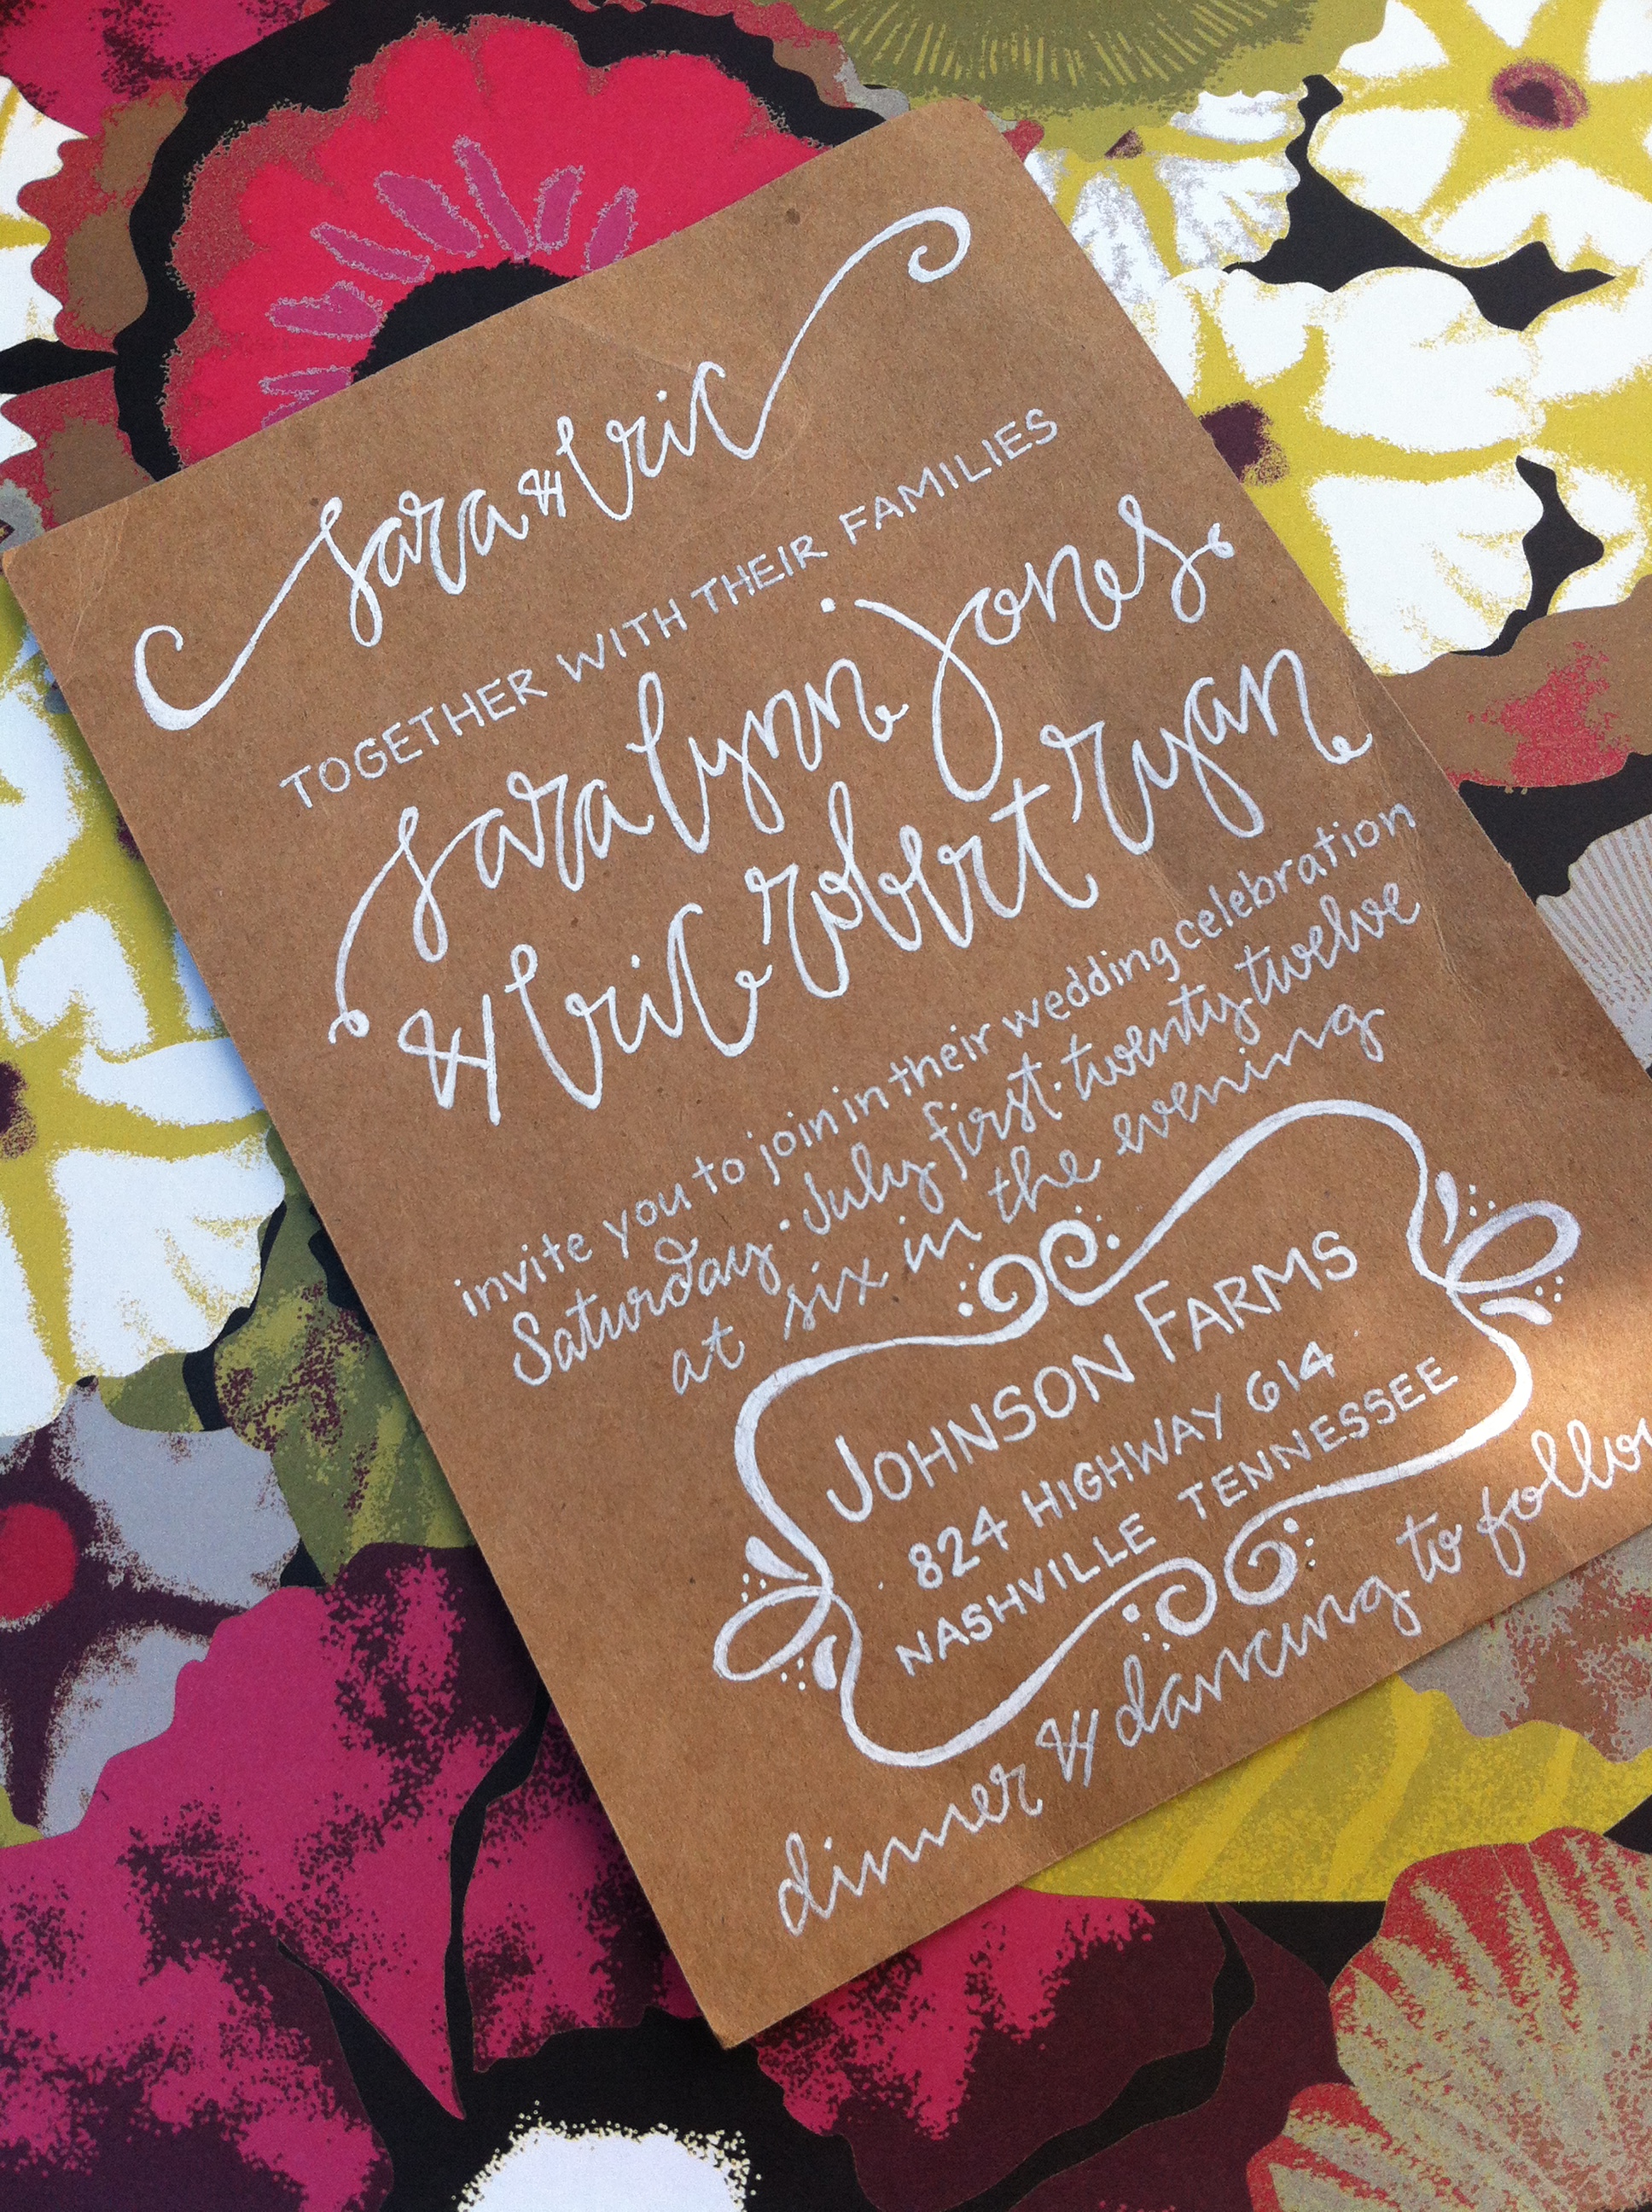 sara & eric
TOGETHER WITH THEIR FAMILIES
sara lynn jones
& eric robert ryan
invite you to join in their wedding celebration
Saturday · July first · twenty twelve
at six in the evening
JOHNSON FARMS
824 HIGHWAY 614
NASHVILLE TENNESSEE
dinner & dancing to follow